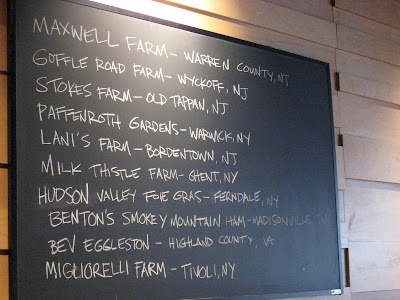 MAXWELL FARM - WARREN COUNTY, NJ
GOFFLE ROAD FARM - WYCKOFF, NJ
STOKES FARM - OLD TAPPAN, NJ
PAFFENROTH GARDENS - WARWICK, NY
LANI'S FARM - BORDENTOWN, NJ
MILK THISTLE FARM - GHENT, NY
HUDSON VALLEY FOIE GRAS - FERNDALE, NY
BENTON'S SMOKEY MOUNTAIN HAM - MADISONVILLE, TN
BEV EGGLESTON - HIGHLAND COUNTY, VA
MIGLIORELLI FARM - TIVOLI, NY